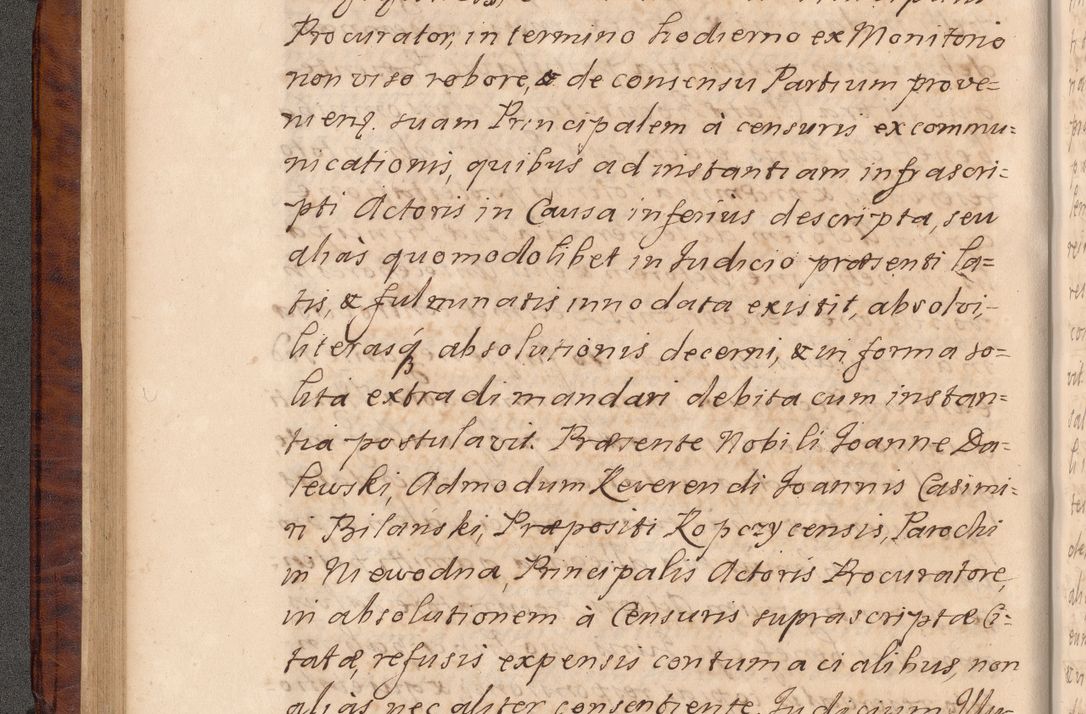 Procurator, in termino hodierno ex Monitorio
non viso robore, & de consensu Partium prove=
nienq. suam Principalem à censuris excommu=
nicationis, quibus ad instantiam infrascri=
pti Actoris in Causa inferius descripta, seu
alias quomodolibet in Judicio præsenti la=
tis, & fulminatis innodata existit, absolvi,
literasq́ absolutionis decerni, & in forma so=
lita extradi mandari debita cum instan=
tia postulavit. Præsente Nobili Joanne Da=
lewski, Admodum Reverendi Joannis Casimi=
ri Bilański, Præpositi Ropczycensis, Parochi
in Niewodna, Principalis Actoris Procuratore,
in absolutionem à Censuris suprascriptæ Ci=
tatæ, refusis expensis contumacialibus, non
aliàs nec aliter consentiente. Judicium Illu=